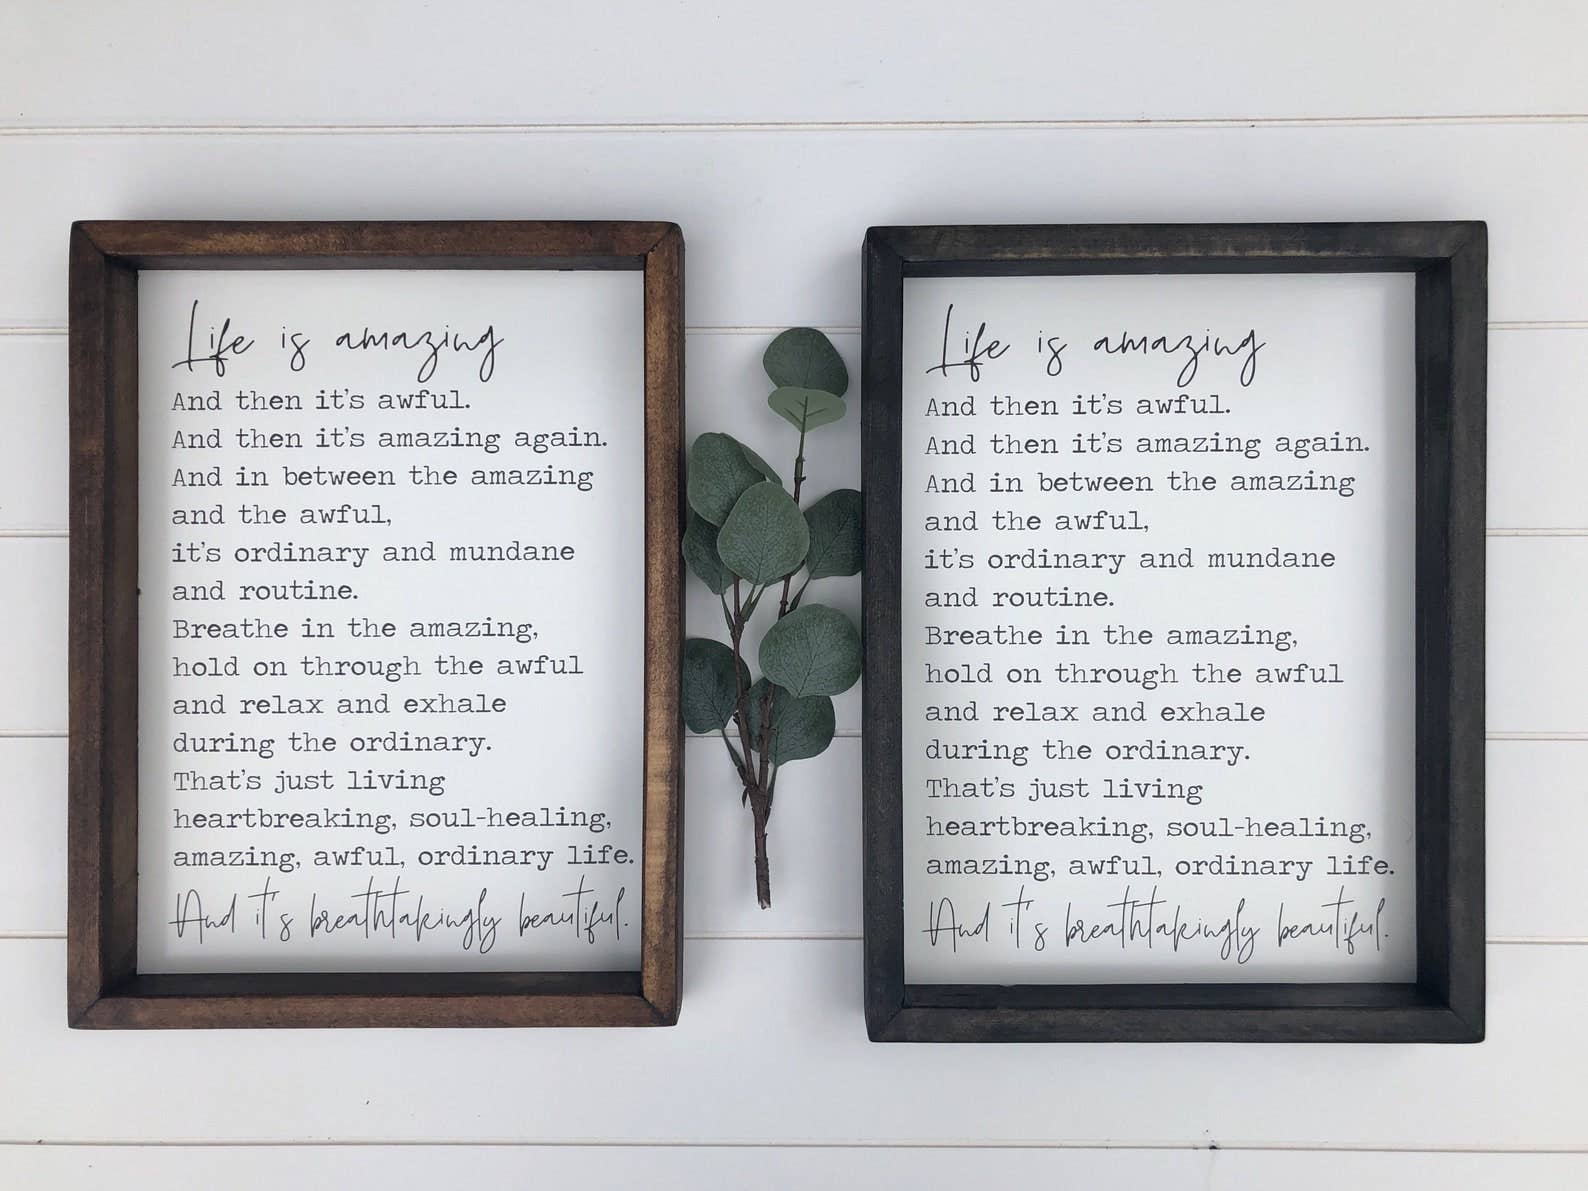 Life is amazing
And then it's awful.
And then it's amazing again.
And in between the amazing
and the awful,
it's ordinary and mundane
and routine.
Breathe in the amazing,
hold on through the awful
and relax and exhale
during the ordinary.
That's just living
heartbreaking, soul-healing,
amazing, awful, ordinary life.
And it's breathtakingly beautiful.
Life is amazing
And then it's awful.
And then it's amazing again.
And in between the amazing
and the awful,
it's ordinary and mundane
and routine.
Breathe in the amazing,
hold on through the awful
and relax and exhale
during the ordinary.
That's just living
heartbreaking, soul-healing,
amazing, awful, ordinary life.
And it's breathtakingly beautiful.